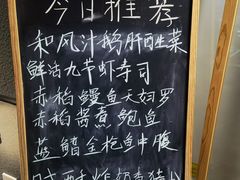 今日推荐
和风汁鹅肝西生菜
鲜活九节虾寿司
赤稻鳗鱼天妇罗
赤稻酱煮鲍鱼
蓝鳍金枪鱼中腹